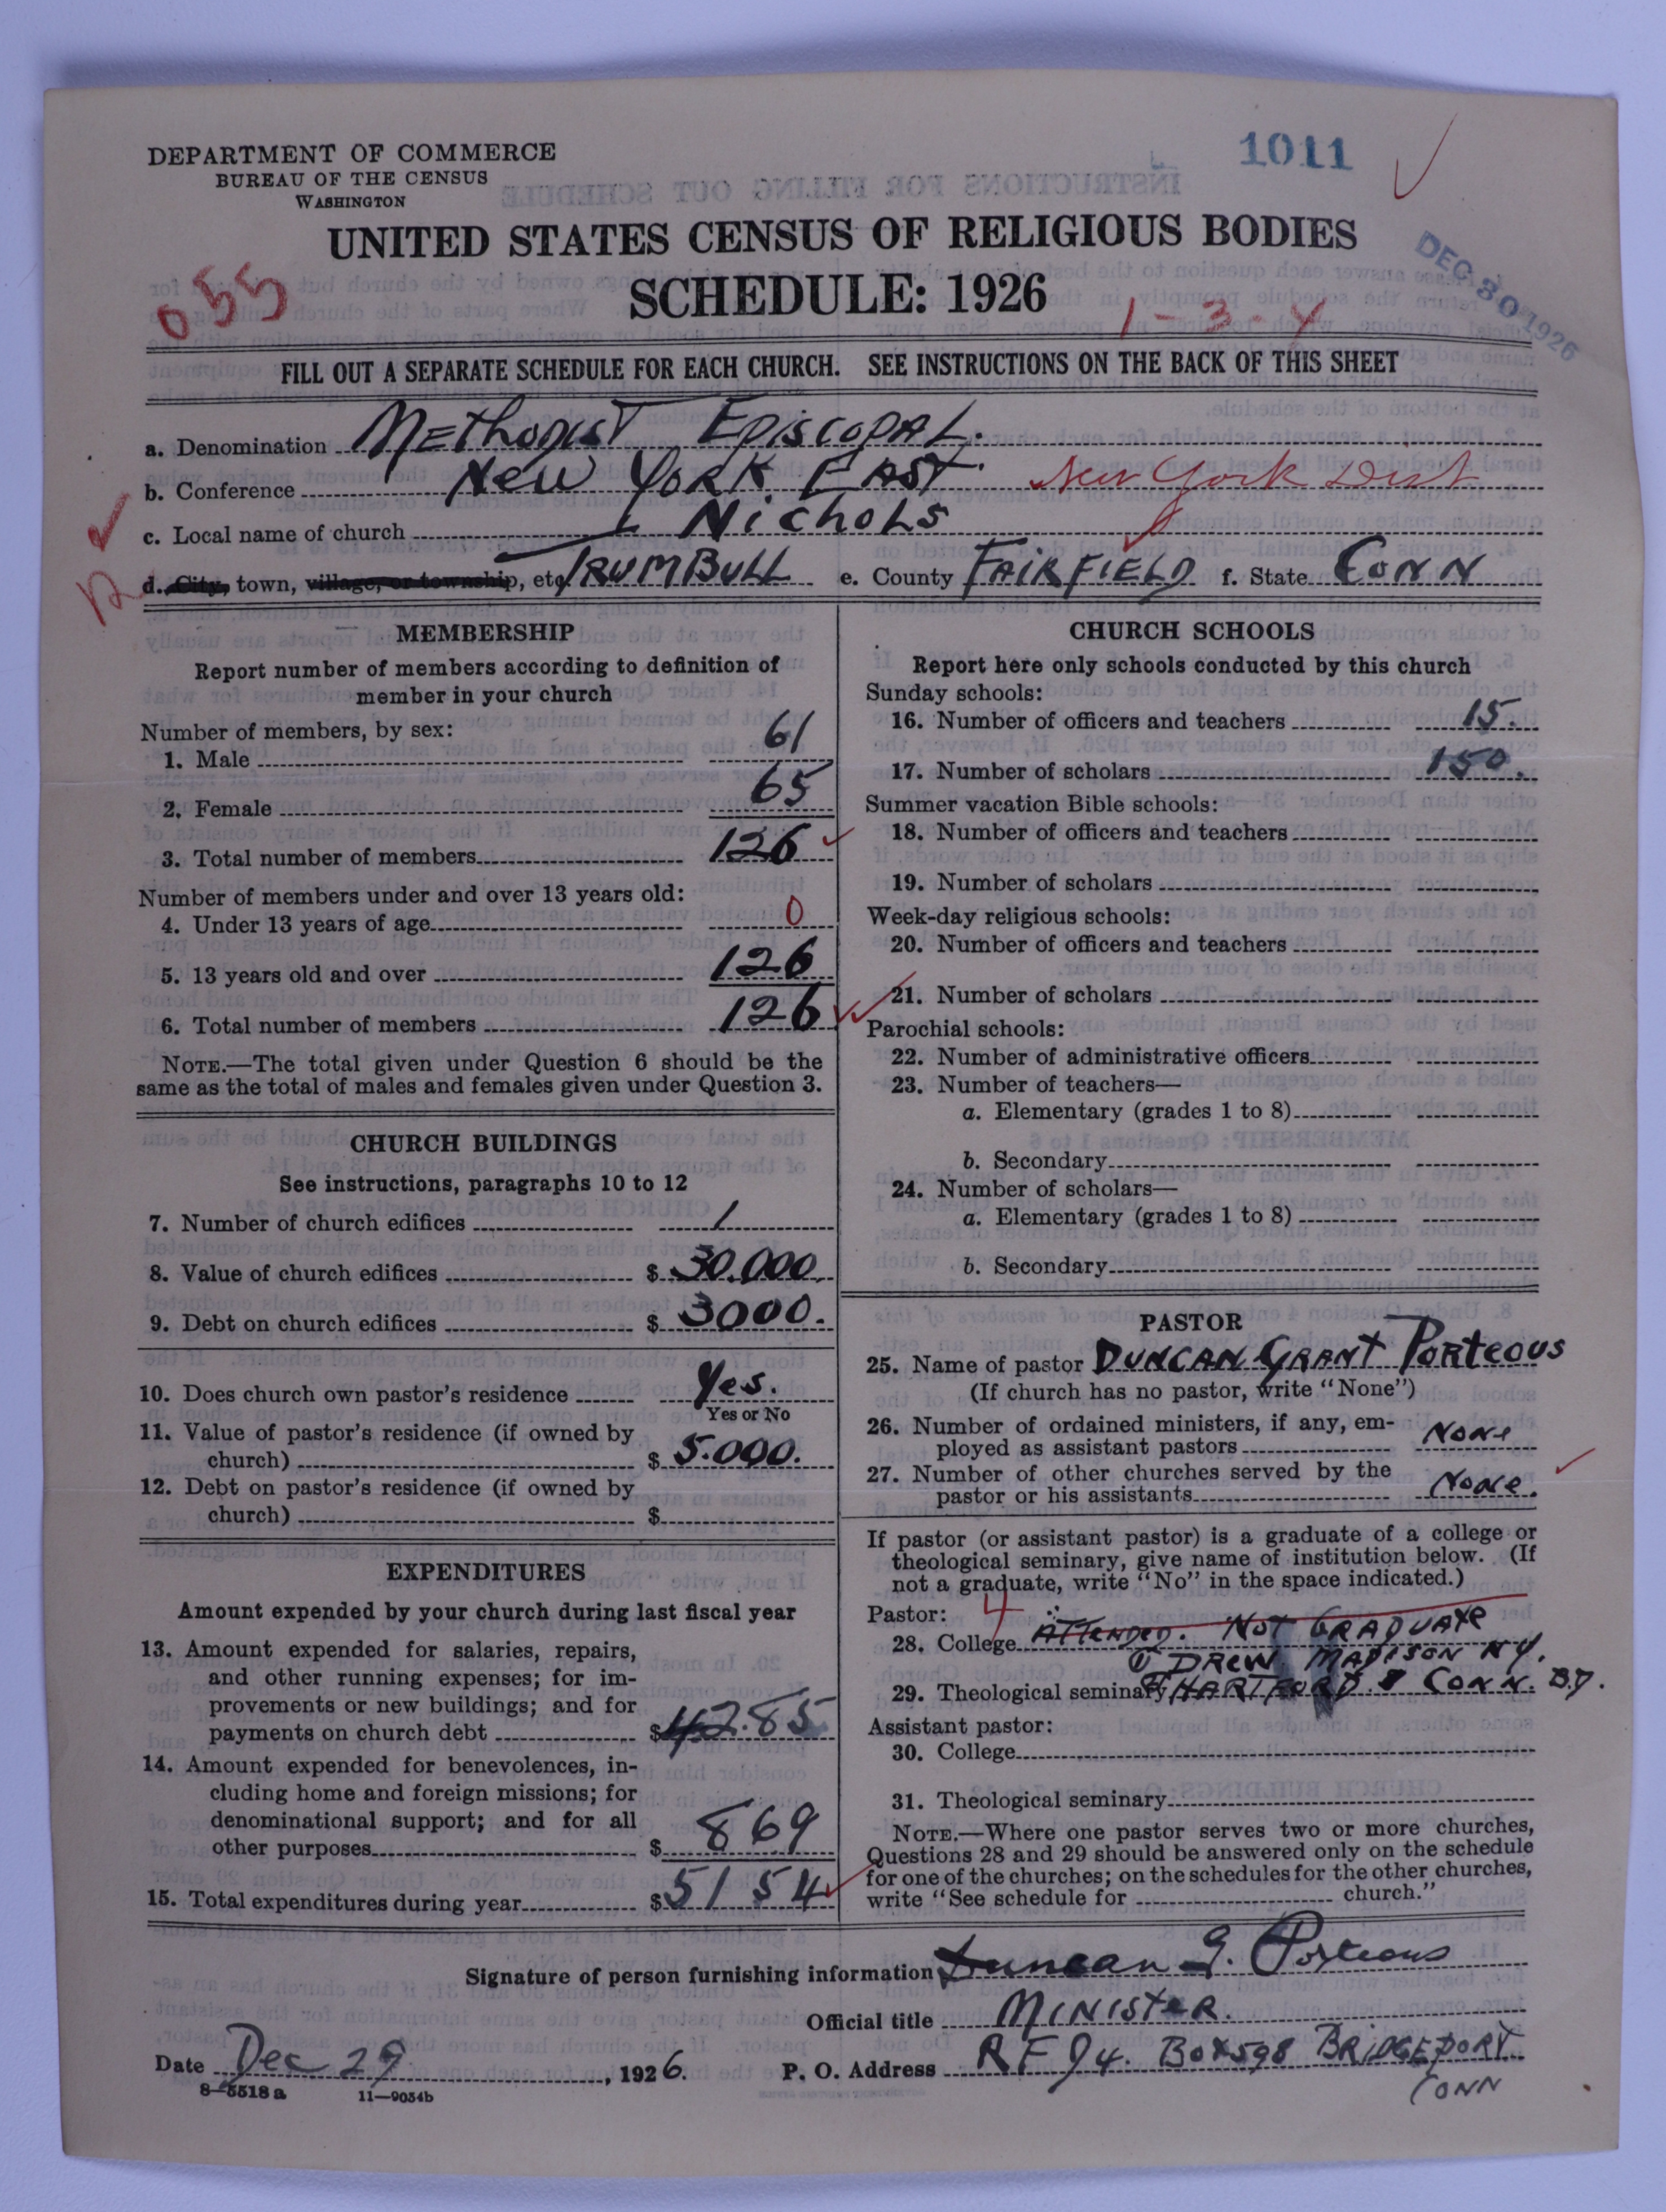 1011
DEPARTMENT OF COMMERCE
BUREAU OF THE CENSUS
WASHINGTON
UNITED STATES CENSUS OF RELIGIOUS BODIES
SCHEDULE: 1926
DEC 30 1926
055
1-3-4
FILL OUT A SEPARATE SCHEDULE FOR EACH CHURCH. SEE INSTRUCTIONS ON THE BACK OF THIS SHEET
a. Denomination Methodist Episcopal.
b. Conference New York East. New York Dist
c. Local name of church Nichols
d. City, town, village, or township, etc. Trumbull e. County Fairfield f. State Conn
MEMBERSHIP
Report number of members according to definition of
member in your church
Number of members, by sex:
1. Male 61
2. Female 65
3. Total number of members 126
Number of members under and over 13 years old:
4. Under 13 years of age 0
5. 13 years old and over 126
6. Total number of members 126
NOTE.—The total given under Question 6 should be the
same as the total of males and females given under Question 3.
CHURCH BUILDINGS
See instructions, paragraphs 10 to 12
7. Number of church edifices 1
8. Value of church edifices $ 30.000.
9. Debt on church edifices $ 3000.
10. Does church own pastor's residence Yes.
Yes or No
11. Value of pastor's residence (if owned by
church) $ 5.000.
12. Debt on pastor's residence (if owned by
church) $
EXPENDITURES
Amount expended by your church during last fiscal year
13. Amount expended for salaries, repairs,
and other running expenses; for im-
provements or new buildings; and for
payments on church debt $ 4285
14. Amount expended for benevolences, in-
cluding home and foreign missions; for
denominational support; and for all
other purposes $ 869
15. Total expenditures during year $ 5154
CHURCH SCHOOLS
Report here only schools conducted by this church
Sunday schools:
16. Number of officers and teachers 15.
17. Number of scholars 150.
Summer vacation Bible schools:
18. Number of officers and teachers
19. Number of scholars
Week-day religious schools:
20. Number of officers and teachers
21. Number of scholars
Parochial schools:
22. Number of administrative officers
23. Number of teachers—
a. Elementary (grades 1 to 8)
b. Secondary
24. Number of scholars—
a. Elementary (grades 1 to 8)
b. Secondary
PASTOR
25. Name of pastor Duncan Grant Porteous
(If church has no pastor, write "None")
26. Number of ordained ministers, if any, em-
ployed as assistant pastors None
27. Number of other churches served by the
pastor or his assistants None.
If pastor (or assistant pastor) is a graduate of a college or
theological seminary, give name of institution below. (If
not a graduate, write "No" in the space indicated.)
Pastor: 4
28. College Attended. Not Graduate
Drew Madison NY.
29. Theological seminary Hartford Conn. B.D.
Assistant pastor:
30. College
31. Theological seminary
NOTE.—Where one pastor serves two or more churches,
Questions 28 and 29 should be answered only on the schedule
for one of the churches; on the schedules for the other churches,
write "See schedule for church."
Signature of person furnishing information Duncan G. Porteous
Official title Minister.
Date Dec 29, 1926. P. O. Address RFD 4. Box 598 Bridgeport
Conn
8-5518 a 11—9034b